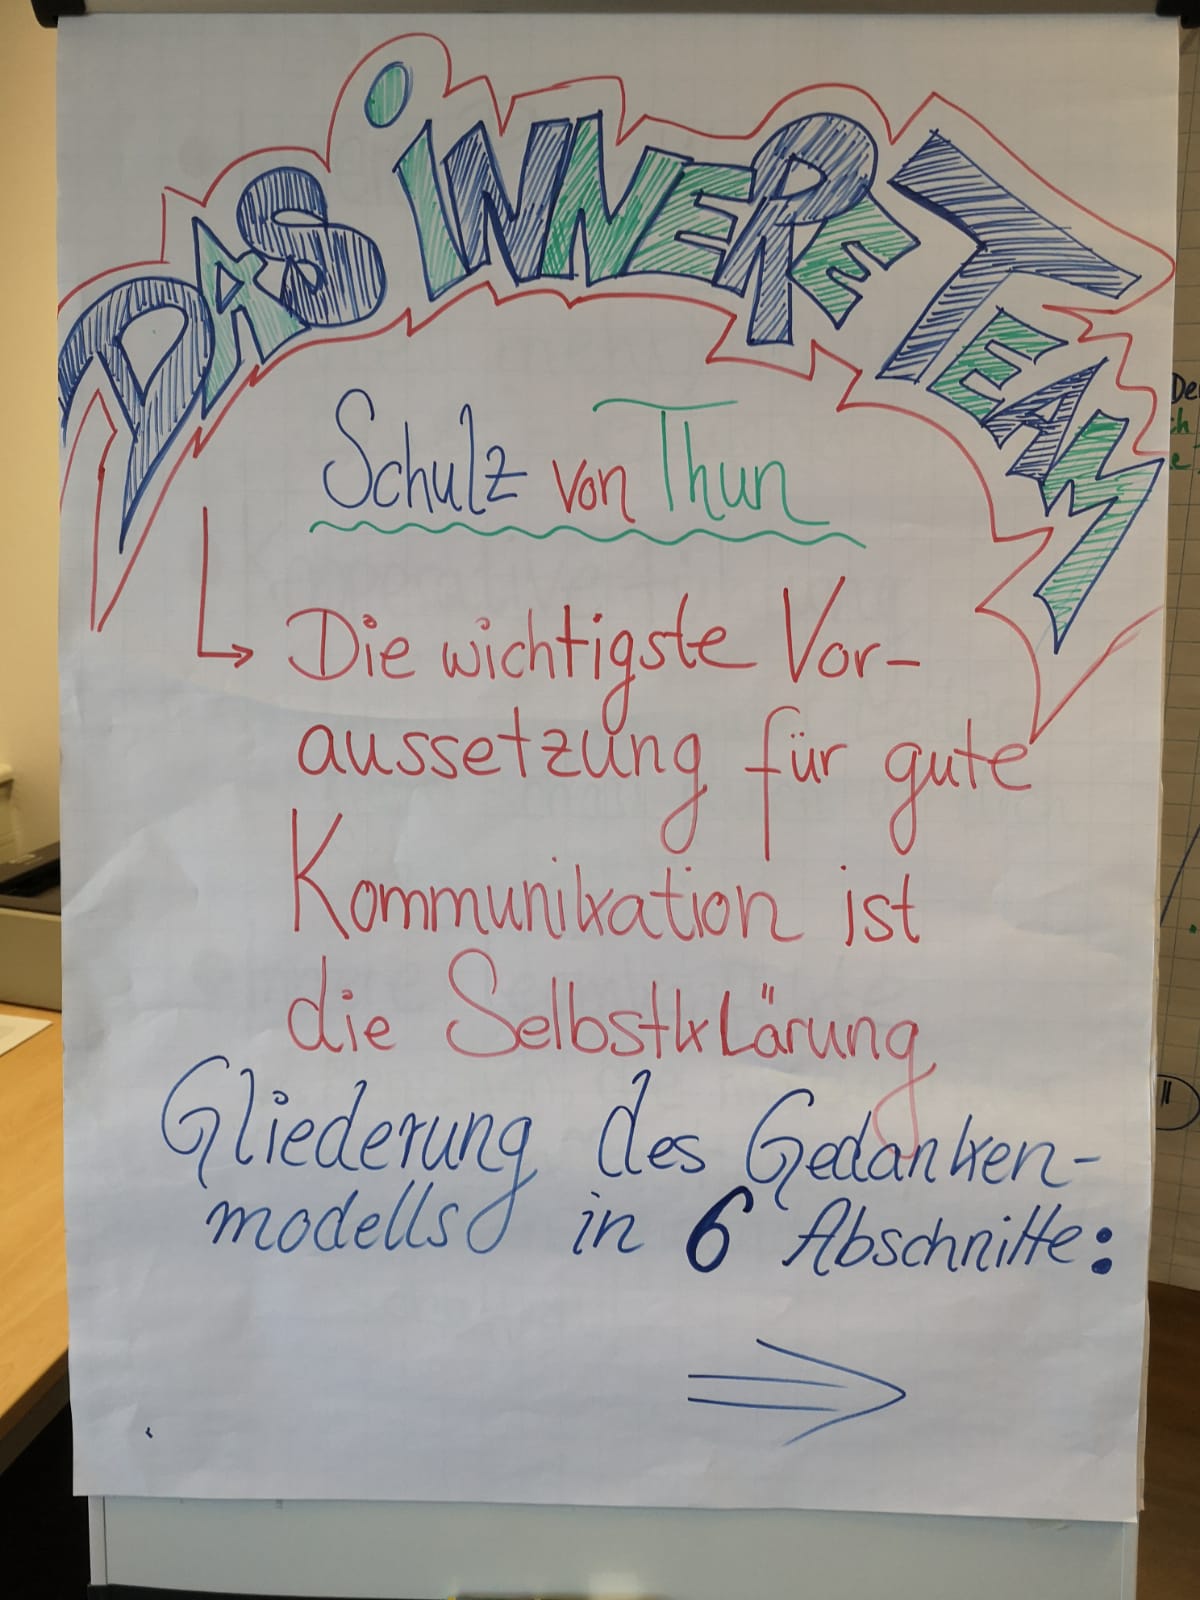 DAS INNERE TEAM
Schulz von Thun
Die wichtigste Vor-
aussetzung für gute
Kommunikation ist
die Selbstklärung
Gliederung des Gedanken-
modells in 6 Abschnitte: